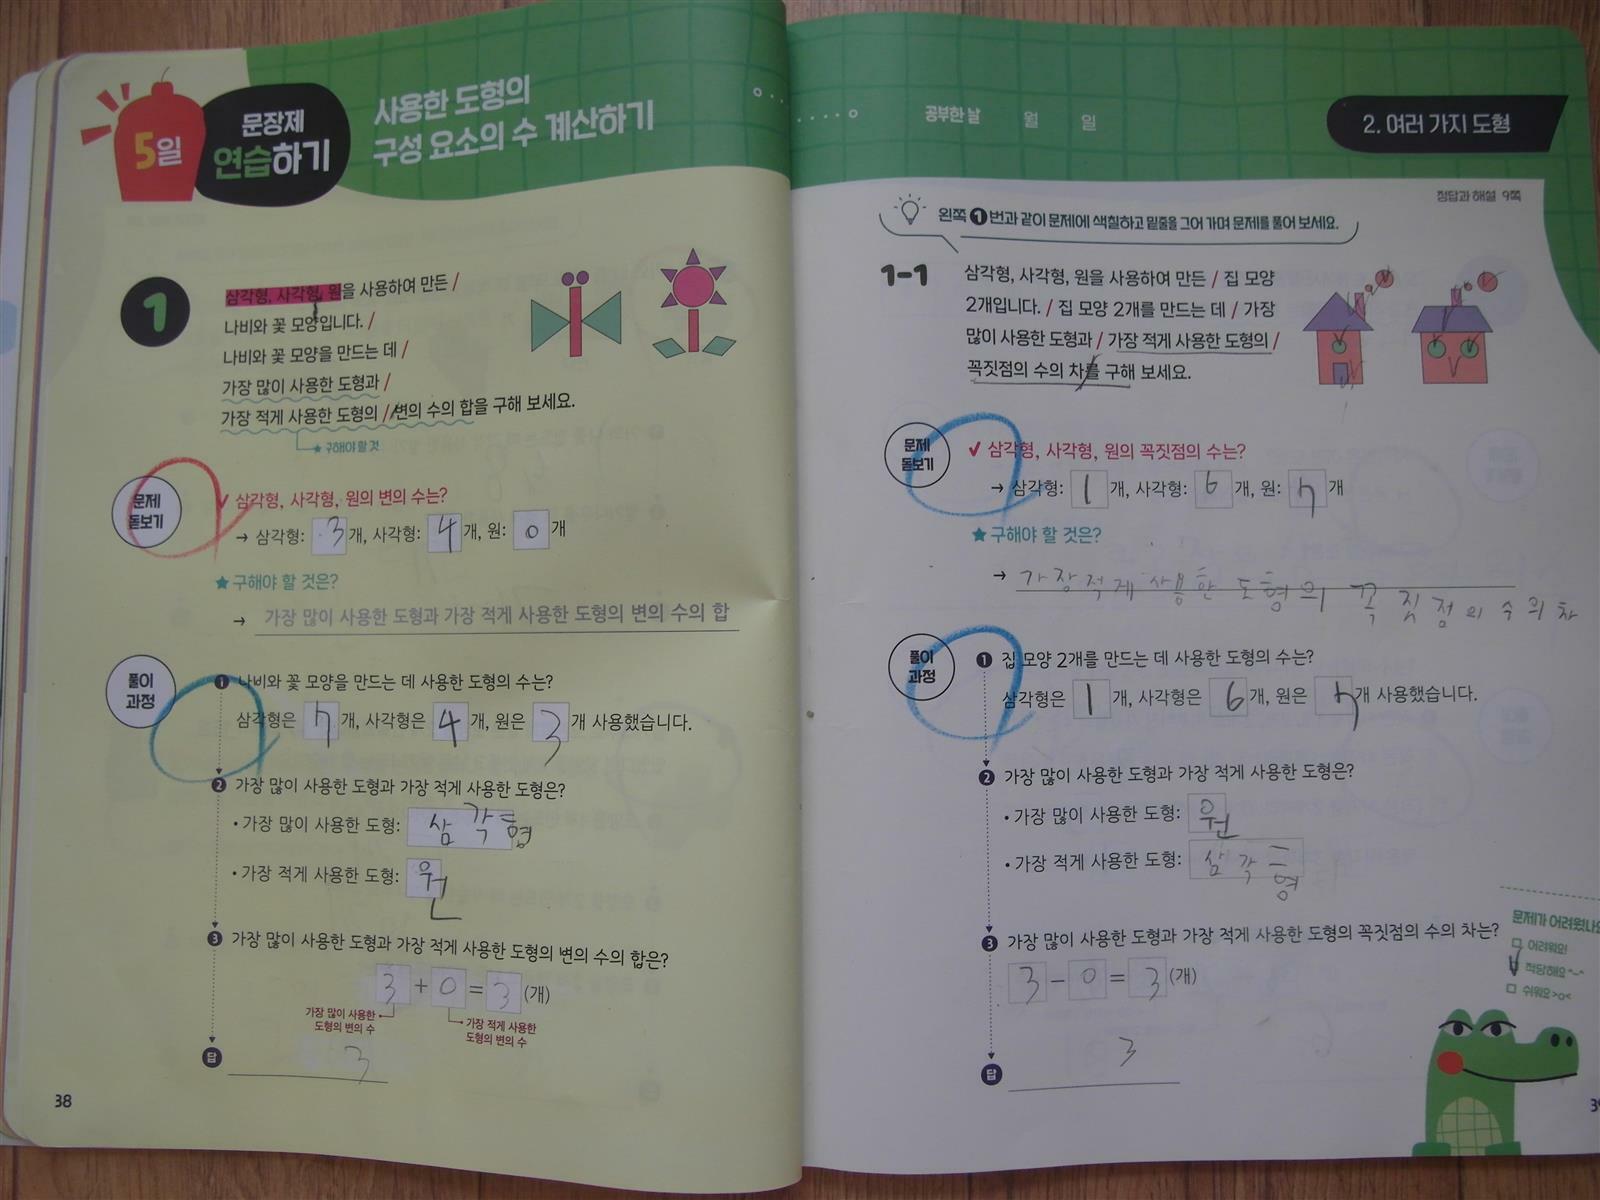 5일
문장제
연습하기
사용한 도형의
구성 요소의 수 계산하기
1
삼각형, 사각형, 원을 사용하여 만든 /
나비와 꽃 모양입니다. /
나비와 꽃 모양을 만드는 데 /
가장 많이 사용한 도형과 /
가장 적게 사용한 도형의 / 변의 수의 합을 구해 보세요.
★구해야 할 것
문제
돋보기
✓ 삼각형, 사각형, 원의 변의 수는?
→ 삼각형: 3 개, 사각형: 4 개, 원: 0 개
★ 구해야 할 것은?
→ 가장 많이 사용한 도형과 가장 적게 사용한 도형의 변의 수의 합
풀이
과정
❶ 나비와 꽃 모양을 만드는 데 사용한 도형의 수는?
삼각형은 ㄱ 개, 사각형은 4 개, 원은 3 개 사용했습니다.
❷ 가장 많이 사용한 도형과 가장 적게 사용한 도형은?
• 가장 많이 사용한 도형: 삼각형
• 가장 적게 사용한 도형: 원
❸ 가장 많이 사용한 도형과 가장 적게 사용한 도형의 변의 수의 합은?
3 + 0 = 3 (개)
가장 많이 사용한
도형의 변의 수
가장 적게 사용한
도형의 변의 수
답 3
38
공부한 날 월 일
2. 여러 가지 도형
정답과 해설 9쪽
왼쪽 ❶ 번과 같이 문제에 색칠하고 밑줄을 그어 가며 문제를 풀어 보세요.
1-1
삼각형, 사각형, 원을 사용하여 만든 / 집 모양
2개입니다. / 집 모양 2개를 만드는 데 / 가장
많이 사용한 도형과 / 가장 적게 사용한 도형의 /
꼭짓점의 수의 차를 구해 보세요.
문제
돋보기
✓ 삼각형, 사각형, 원의 꼭짓점의 수는?
→ 삼각형: 1 개, 사각형: 6 개, 원: 7 개
★ 구해야 할 것은?
→ 가장적게 사용한 도형의 꼭짓점의 수의 차
풀이
과정
❶ 집 모양 2개를 만드는 데 사용한 도형의 수는?
삼각형은 1 개, 사각형은 6 개, 원은 7 개 사용했습니다.
❷ 가장 많이 사용한 도형과 가장 적게 사용한 도형은?
• 가장 많이 사용한 도형: 원
• 가장 적게 사용한 도형: 삼각형
❸ 가장 많이 사용한 도형과 가장 적게 사용한 도형의 꼭짓점의 수의 차는?
3 - 0 = 3 (개)
답 3
문제가 어려웠나요
어려워요!
적당해요 ^-^
쉬워요 >o<